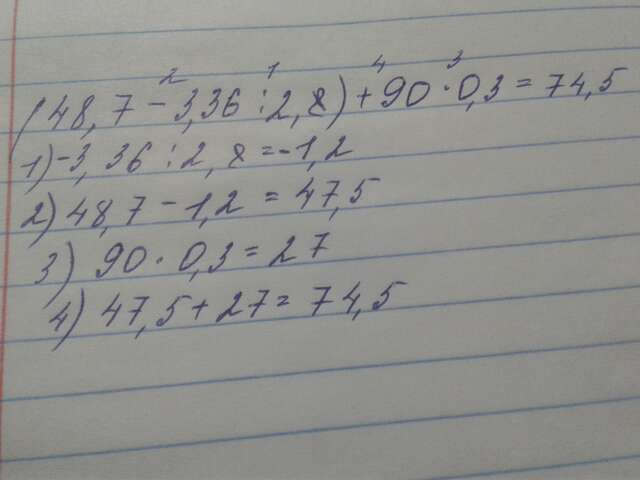 2 1 4 3
(48,7 - 3,36 : 2,8) + 90 · 0,3 = 74,5
1) -3,36 : 2,8 = -1,2
2) 48,7 - 1,2 = 47,5
3) 90 · 0,3 = 27
4) 47,5 + 27 = 74,5